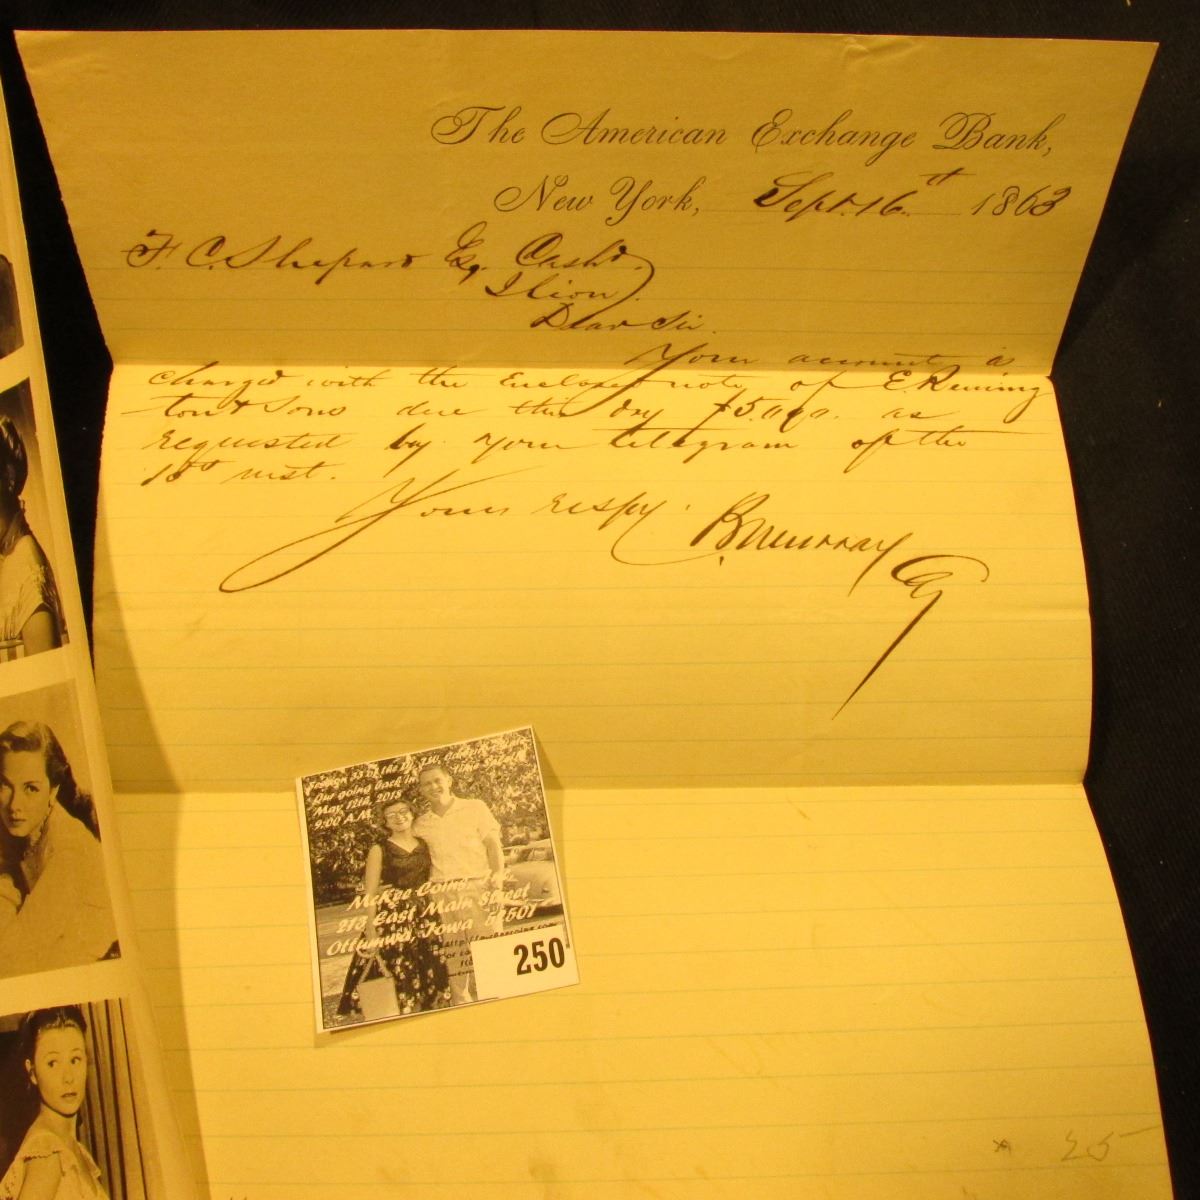 The American Exchange Bank,
New York, Sept. 16th 1863
F. C. Shepard Esq. Cashr.
Ilion.
Dear Sir.
Your account is
charged with the enclosed note of E. Reming
ton & Sons due this day $5,000. as
requested by your telegram of the
inst.
Yours respy.
B. Murray
McKee Coins, Inc.
213 East Main Street
Ottumwa, Iowa 52501
our going back in Time
May 12th, 2018
9:00 A.M.
250
25